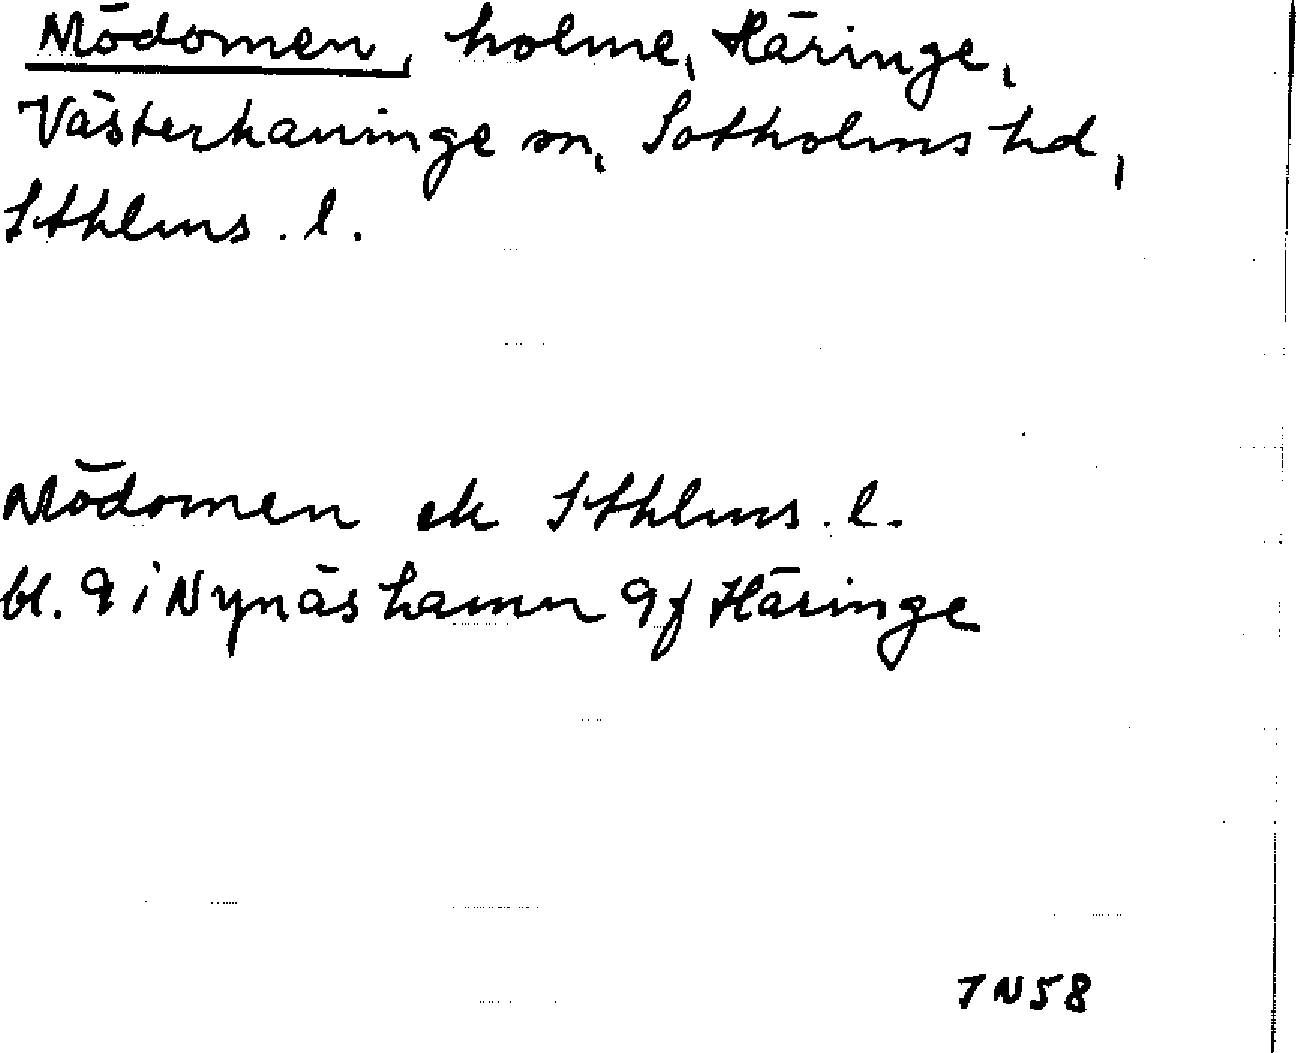 Mödomen, holme, Häringe,
Västerhaninge sn, Sotholms hd,
Sthlms. l.
Mödomen ek Sthlms. l.
bl. 9 i Nynäshamn 9f Häringe
TN58